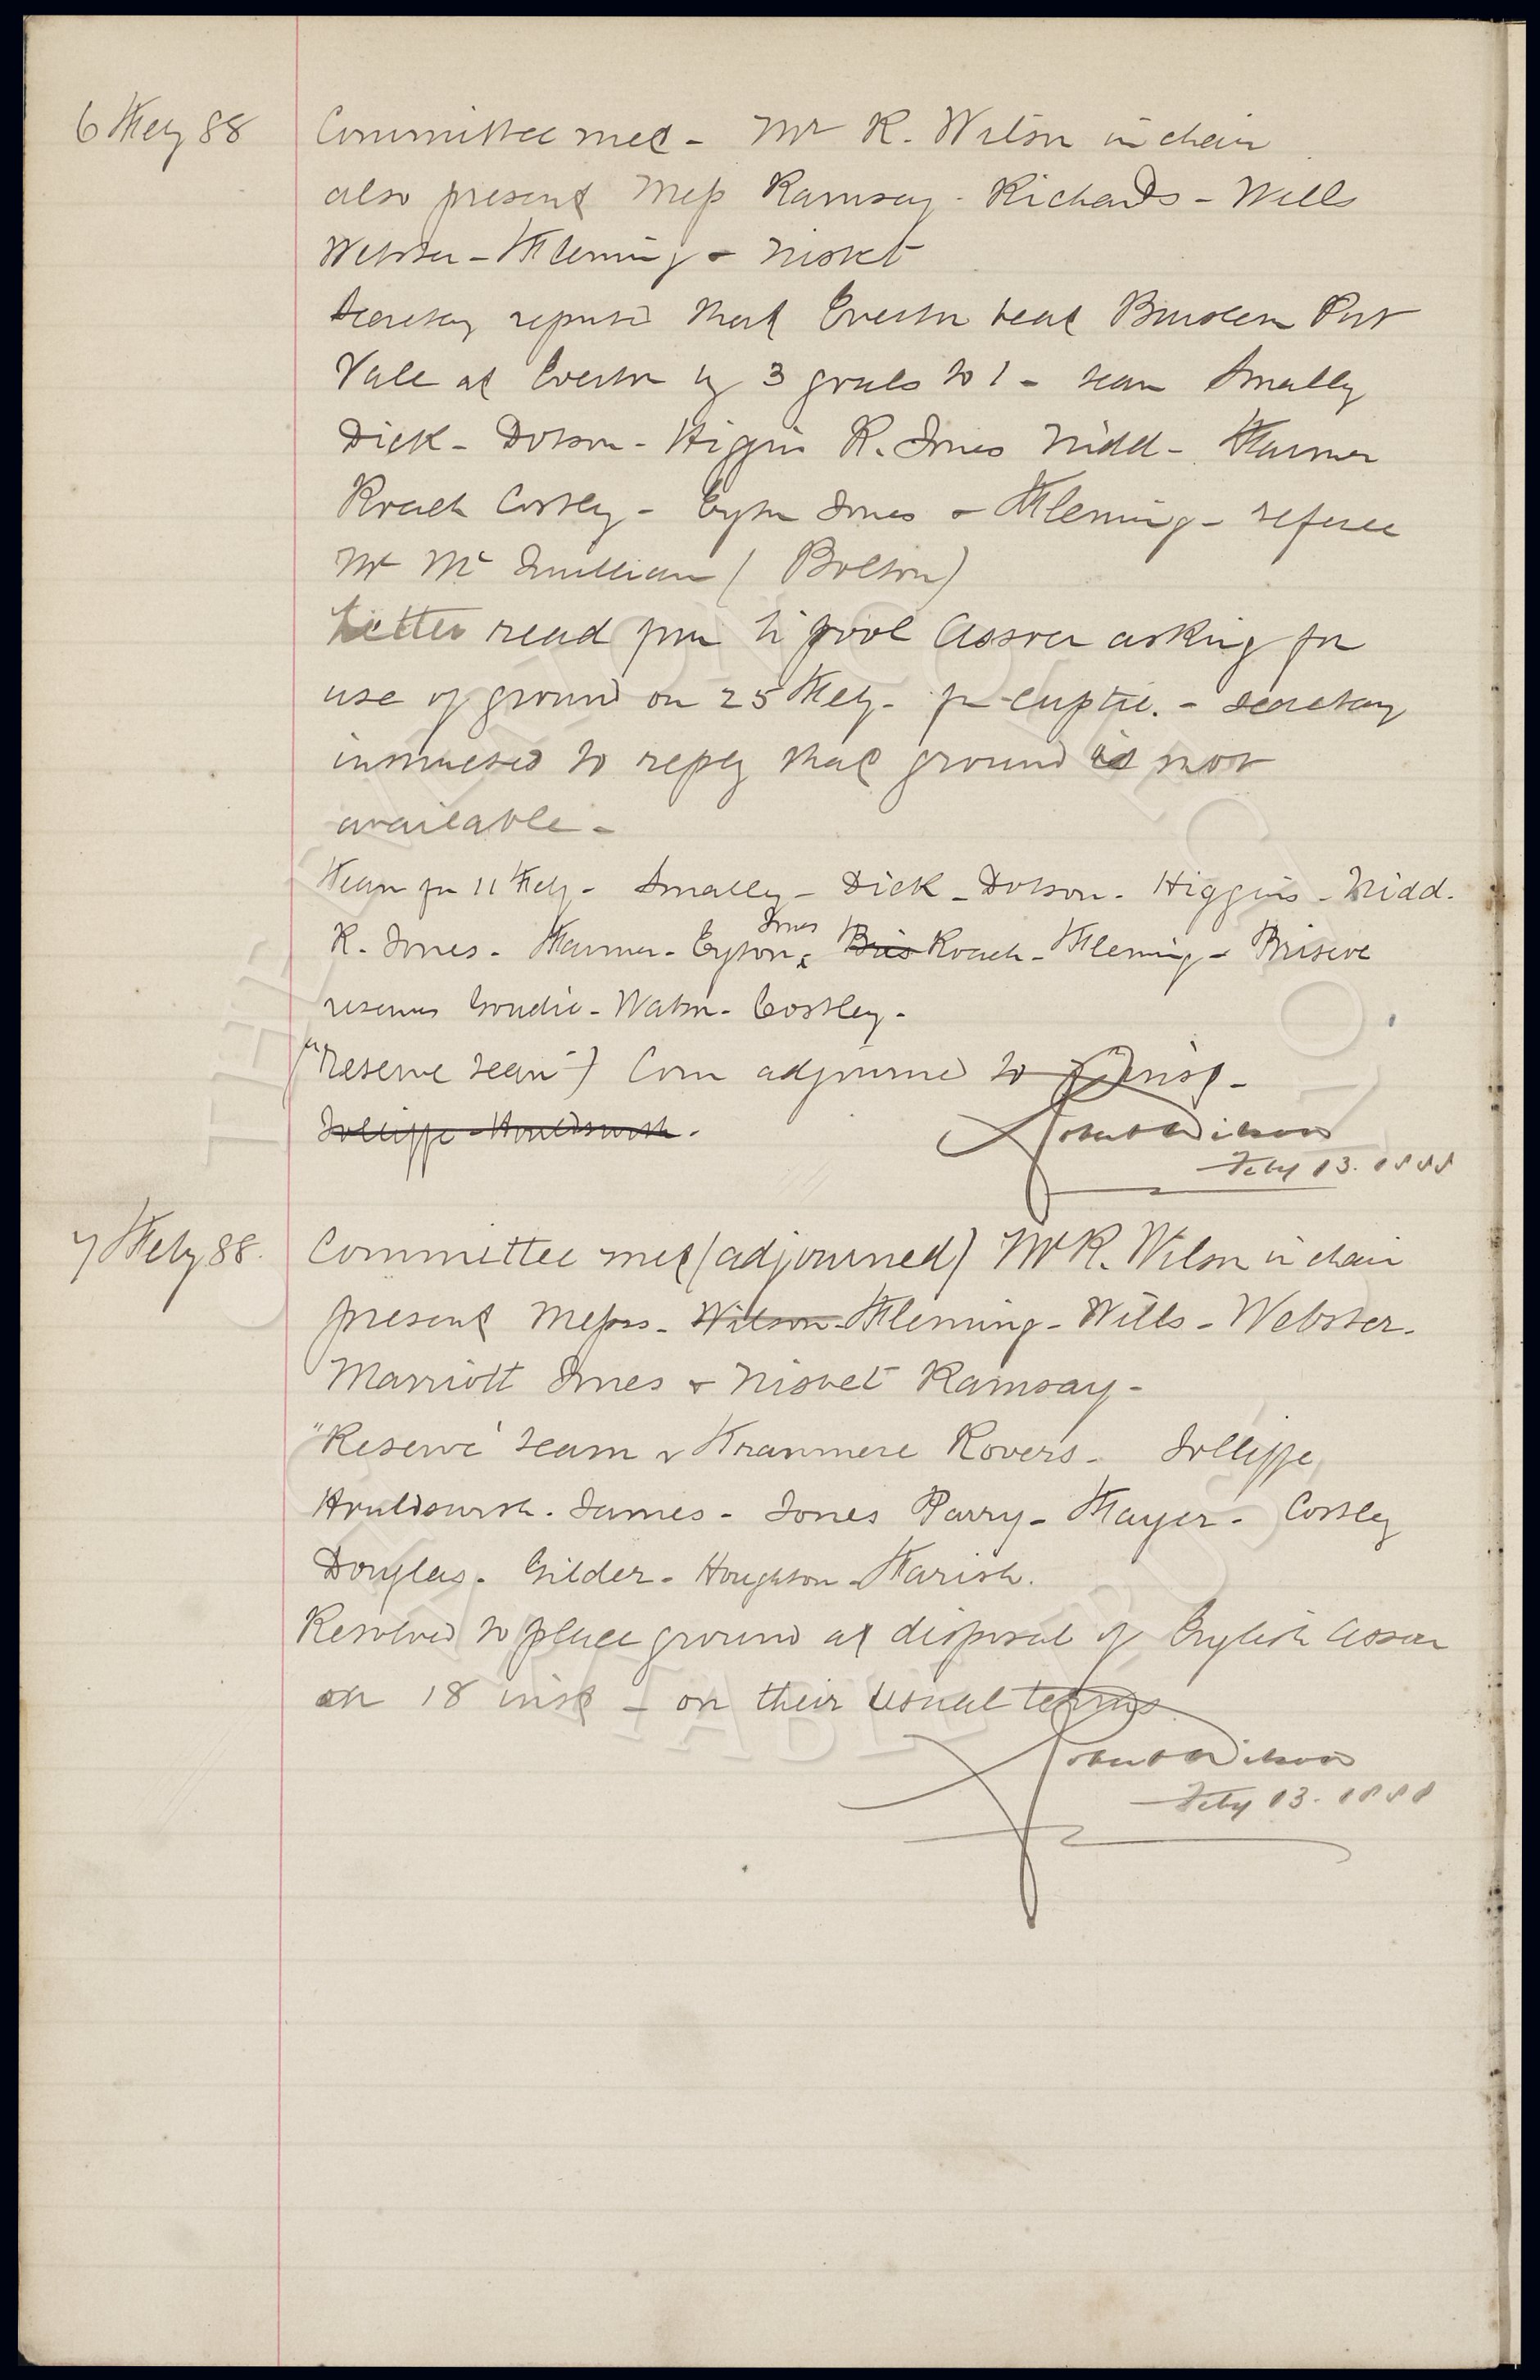 6 Feby 88
Committee met - Mr R. Wilson in chair
also present Mess Ramsay - Richards - Wills
Webster - Fleming & Nisbet
Secretary reported that Everton beat Burslem Port
Vale at Everton by 3 goals to 1 - team Smalley
Dick - Dobson - Higgins R. Jones Nidd - Farmer
Roach Costley - Eyton Jones & Fleming - referee
Mr Mc (Bolton)
Letter read from L'pool Assocn asking for
use of ground on 25 Feby - for cuptie. - secretary
instructed to reply that ground is not
available -
Team for 11 Feby - Smalley - Dick - Dobson - Higgins - Nidd.
R. Jones - Farmer - Eyton Jones & Bris Roach - Fleming - Briscoe
reserves Goudie - Watson - Costley -
("Reserve team") Com adjourned to 7 inst -
Jolliffe - Houldsworth.
Robert Wilson
Feby 13. 1888
7 Feby 88.
Committee met (adjourned) Mr R. Wilson in chair
present Messrs - Wilson - Fleming - Wills - Webster.
Marriott Jones & Nisbet Ramsay -
"Reserve" team v Tranmere Rovers - Jolliffe
Houldsworth. James - Jones Parry - Mayer - Costley
Douglas - Gilder - Houghton - Harish.
Resolved to place ground at disposal of English Assocn
on 18 inst - on their usual terms
Robert Wilson
Feby 13. 1888